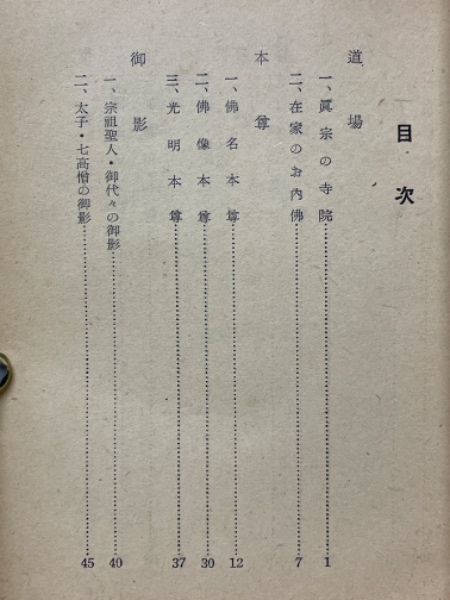 目次
道場
一、眞宗の寺院 1
二、在家のお內佛 7
本尊
一、佛名本尊 12
二、佛像本尊 30
三、光明本尊 37
御影
一、宗祖聖人・御代々の御影 40
二、太子・七高僧の御影 45